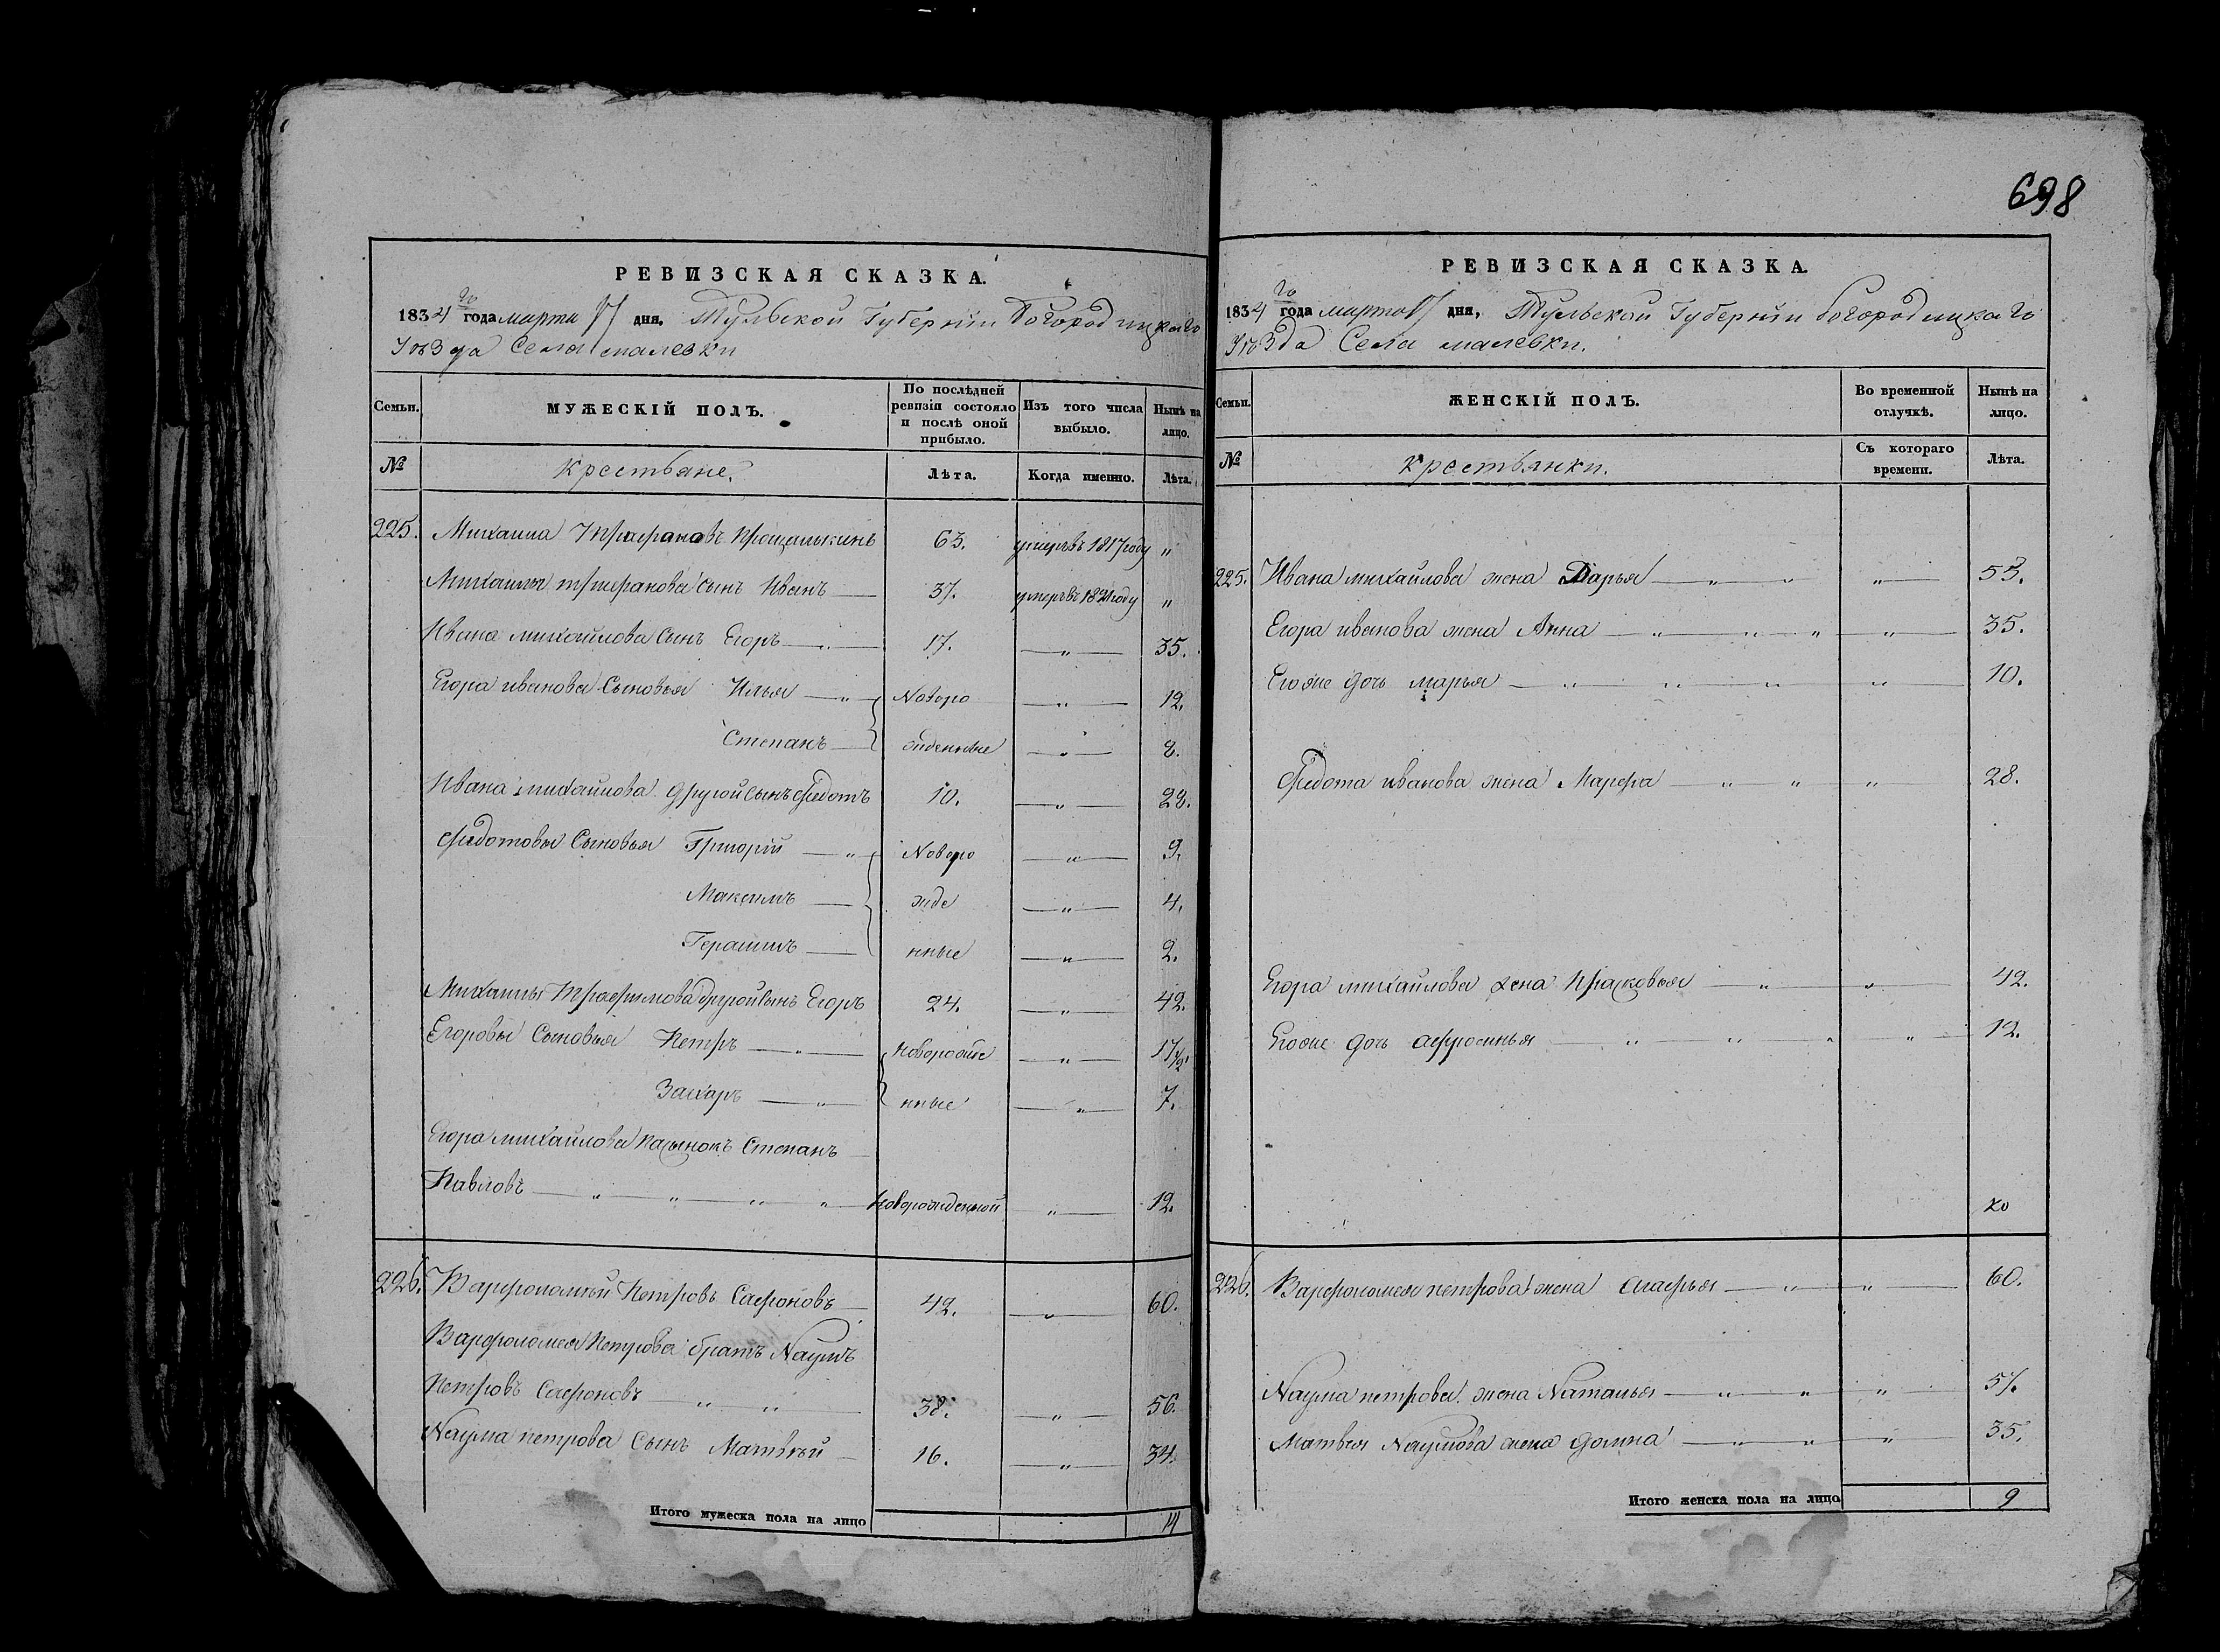 698
РЕВИЗСКАЯ СКАЗКА.
1834 го года марта дня, Тульской Губерніи Богородицкаго
Уѣзда Села малевки
Семьи. МУЖЕСКІЙ ПОЛЪ. По послѣдней ревизіи состояло и послѣ оной прибыло. Изъ того числа выбыло. Нынѣ на лицо.
№ Крестьяне. Лѣта. Когда именно. Лѣта.
225. Михаила 63. умеръ въ 1817 году "
Михаилы сынъ Иванъ 37. умеръ въ 1821 году "
Ивана михайлова Сынъ Егоръ 17. " 35.
Егора иванова Сыновья Илья Новоро " 12.
Степанъ жденные " 2.
Ивана михайлова другой Сынъ Федотъ 10. " 28.
Федотовы Сыновья Григорій Новоро " 9.
Максимъ жде " 4.
Герасимъ нные " 2.
Михаилы Трафимова другой Сынъ Егоръ 24. " 42.
Егоровы Сыновья Петръ новорожде " 17 1/2.
Захаръ нные " 7.
Егора михайлова пасынокъ Степанъ
Павловъ новорожденный " 12.
226. Варфоломей Петровъ Сафоновъ 42. " 60.
Варфоломея Петрова братъ Наумъ
Петровъ Сафоновъ 38. " 56.
Наума петрова Сынъ Матвѣй 16. " 34.
Итого мужеска пола на лицо 14
РЕВИЗСКАЯ СКАЗКА.
1834 го года марта дня, Тульской Губерніи богородицкаго
Уѣзда Села малевки.
Семьи. ЖЕНСКІЙ ПОЛЪ. Во временной отлучкѣ. Нынѣ на лицо.
№ крестьянки. Съ котораго времени. Лѣта.
225. Ивана михайлова жена Дарья " 53.
Егора иванова жена Анна " 35.
Егоже дочь марья " 10.
Федота иванова жена Марфа " 28.
Егора михайлова жена Прасковья " 42.
Егоже дочь афросинья " 12.
226. Варфоломея петрова жена агафья " 60.
Наума петрова жена Наталья " 57.
Матвея Наумова жена домна " 35.
Итого женска пола на лицо 9